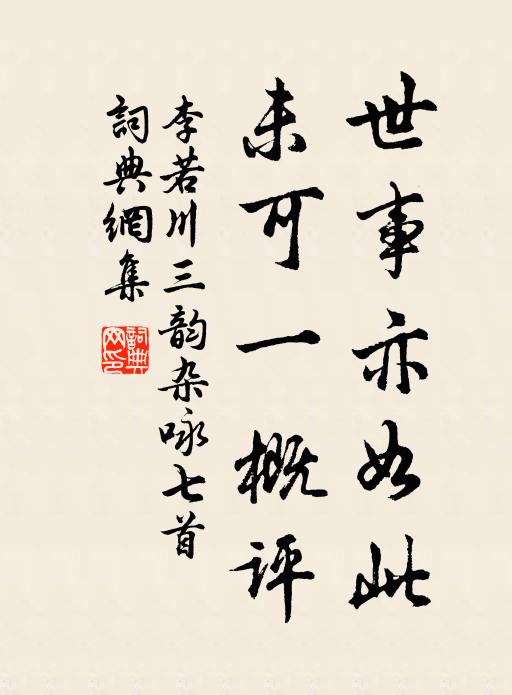 世事亦如此
未可一概評
李若川三韵杂咏七首
詞典網集
詞典網印